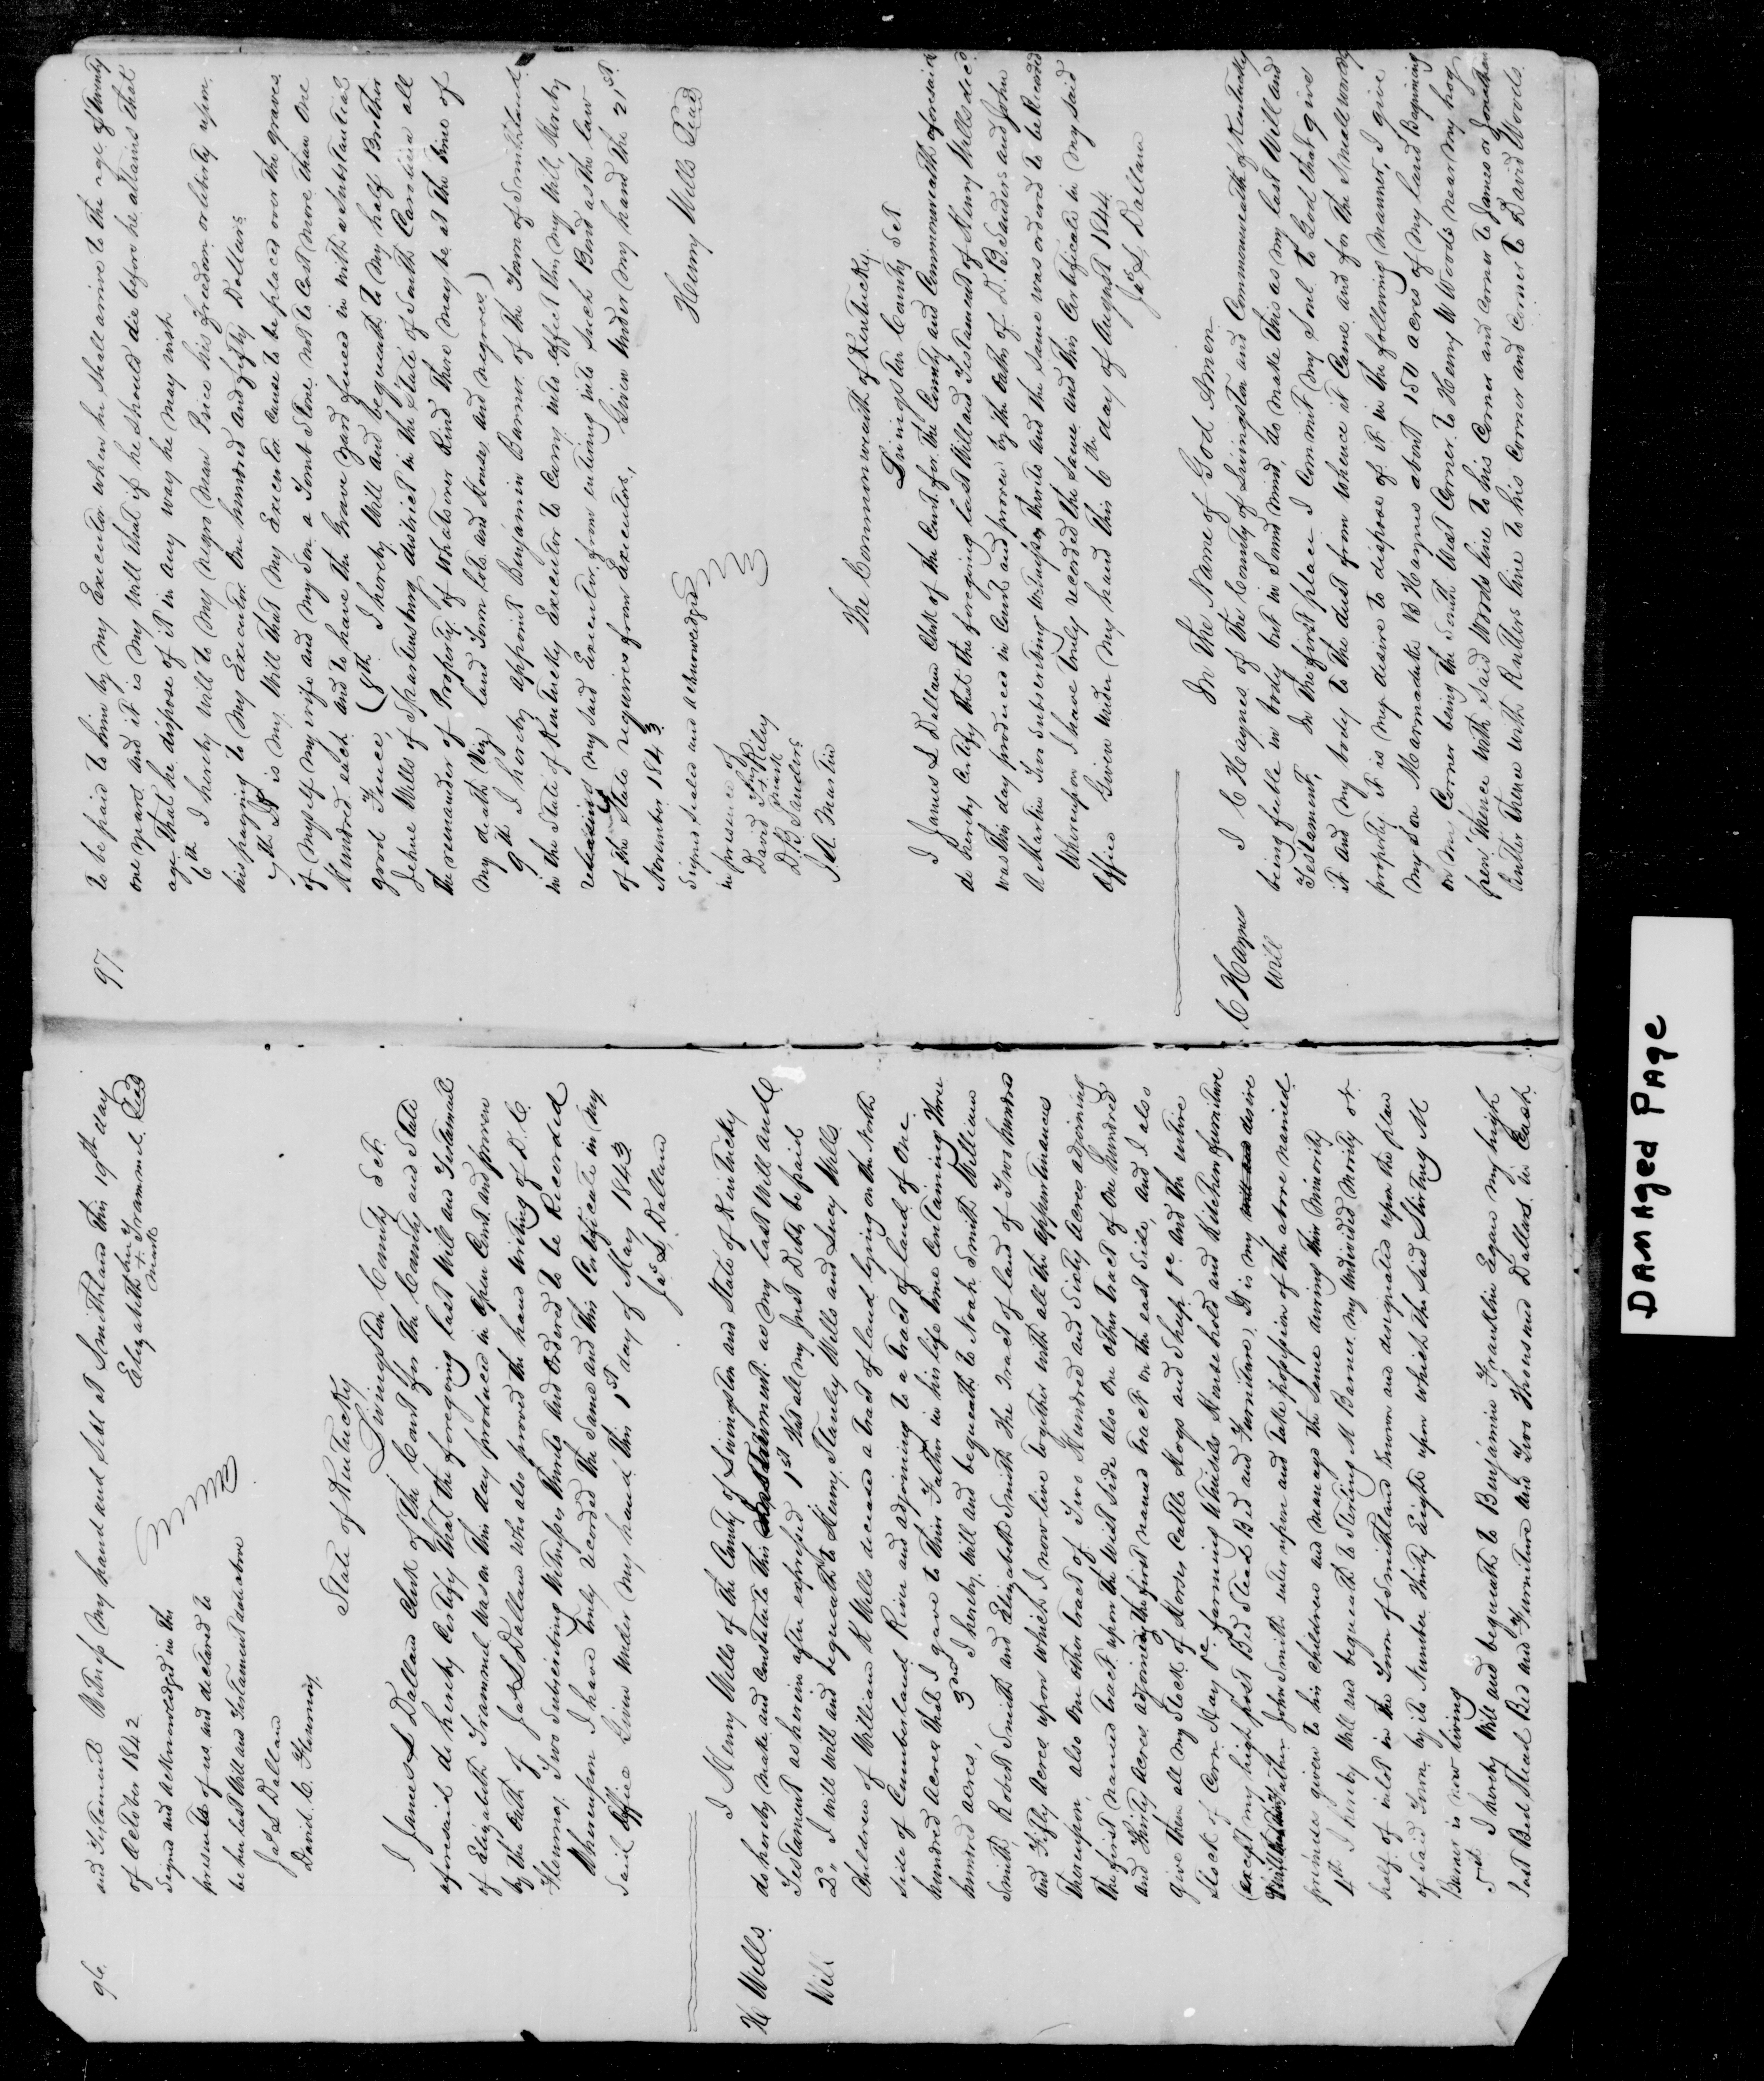 96.
and Testament Witness my hand and Seal at Smithland this 19th day
of October 1842
Elizabeth her + mark Trammel Seal
Signed and acknowledged in the
presence of us and declared to
be her last Will and Testament as above
Jas L Dallam
David C. Flournoy
State of Kentucky
Livingston County Sct.
I James L Dallam Clerk of the Court for the County and State
aforesaid do hereby Certify that the foregoing last Will and Testament
of Elizabeth Trammel was on this day produced in open Court and proven
by the Oath of Jas L Dallam who also proved the hand writing of D. C.
Flournoy Two Subscribing Witnesses thereto and Ordered to be Recorded
Whereupon I have truly recorded the Same and this Certificate in my
said Office Given under my hand this 1st day of May 1843
Jas L. Dallam
H Wells.
Will
I Henry Wells of the County of Livingston and State of Kentucky
do hereby make and Constitute this Instrument as my last Will and
Testament as herein after expressed 1st that all my Just Debts be paid
2d I will Will and bequeath to Henry Stanley Wells and Lucy Wells
Children of William H Wells deceased a tract of land lying on the North
side of Cumberland River and adjoining to a tract of land of One
hundred Acres that I gave to their Father in his life time Containing Three
hundred acres, 3rd I hereby Will and bequeath to Noah Smith William
Smith Robert Smith and Elizabeth Smith the tract of land of Two hundred
and Fifty Acres upon which I now live together with all the appurtenances
thereupon, also one other tract of Two Hundred and Sixty Acres adjoining
the first named tract upon the West Side also one other tract of One Hundred
and Thirty Acres adjoining the first named tract on the east Side, and I also
give them all my Stock of Horses Cattle Hogs and Sheep &c And the entire
Stock of Corn Hay &c farming Utensils House hold and Kitchen furniture
(except my high post Bed Stead Bed and Furniture) It is my desire
that their Father John Smith enter upon and take possession of the above named
premises given to his children and manage the Same during their Minority
4th I hereby Will and bequeath to Sterling M Barner my Undivided Moiety or
half of inlot in the Town of Smithland known and designated upon the plan
of said Town by its Number Thirty Eight upon which the said Sterling M
Barner is now living
5th I hereby Will and bequeath to Benjamin Franklin Egan my high
post Bed Stead Bed and Furniture and Two Thousand Dollars in Cash
97
to be paid to him by my Executor when he shall arrive to the age of twenty
one years and it is my Will that if he should die before he attains that
age that he dispose of it in any way he may wish
6th I hereby Will to my negro man Price his freedom or liberty upon
his paying to my Executor One hundred and fifty Dollars
7th It is my Will that my Executor Cause to be placed over the graves
of myself my wife and my Son a Tomb Stone not to Cost more than One
Hundred each and to have the Grave yard fenced in with a Substantial
good Fence, (8th I hereby Will and bequeath to my half Brother
Jehue Wells of Spartensburg district in the State of South Carolina all
the remainder of Property of Whatsoever kind there may be at the time of
my death (Viz land Town lots and Houses, and negroes)
9th I hereby appoint Benjamin Barner of the Town of Smithland
in the State of Kentucky Executor to Carry into effect this my Will, hereby
releasing my said Executor from entering into such Bond as the law
of the State requires from Executors, Given Under my hand the 21st
November 1843
Henry Wells Seal
Signed Sealed and acknowledged
in presence of
David his + mark Riley
D. B Sanders
J. A. Martin
The Commonwealth of Kentucky
Livingston County Sct
I James L Dallam Clerk of the Court for the County and Commonwealth aforesaid
do hereby Certify that the foregoing last Will and Testament of Henry Wells decd
was this day produced in Court and proven by the oaths of D. B. Sanders and John
A Martin Two Subscribing witnesses thereto and the same was ordered to be Recorded
Whereupon I have truly recorded the Same and this Certificate in my said
Office Given under my hand this 6th day of August 1844
Jas L Dallam
C Haynes
Will
In the Name of God Amen
I C Haynes of the County of Livingston and Commonwealth of Kentucky
being feeble in body but in Sound mind, do make this as my last Will and
Testament, In the first place I Commit my Soul to God that give
it And my body to the dust from whence it Came and for the Small worldly
property it is my desire to dispose of it in the following manner, I give
my Son Marmaduke B Haynes about 150 acres of my land Beginning
on my Corner being the South West Corner to Henry W Woods near my hog
pen thence with Said Woods line to his Corner and Corner to James or Jonathan
Cutler thence with Rutters line to his Corner and Corner to David Woods.
Damaged Page